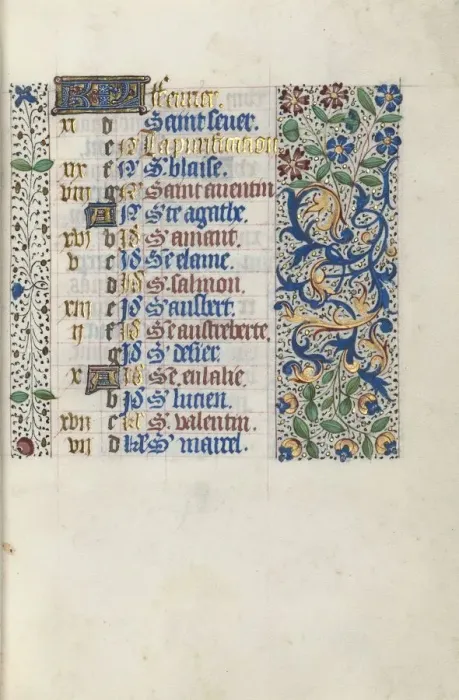 KL feurier.
xi d Saint seuer.
e N La purification
xix f N S. blaise.
viii g N Saint auentin
A N Ste agathe.
xvi b Id S. amant.
v c Id Se elaine.
d Id S. salmon.
xiii e Id S. ausbert.
ii f Id Se austreberte.
g Id S. desier
x A Id Se. eulalie.
b Id S. lucien.
xvii c kl S. valentin.
vii d kl S. marcel.